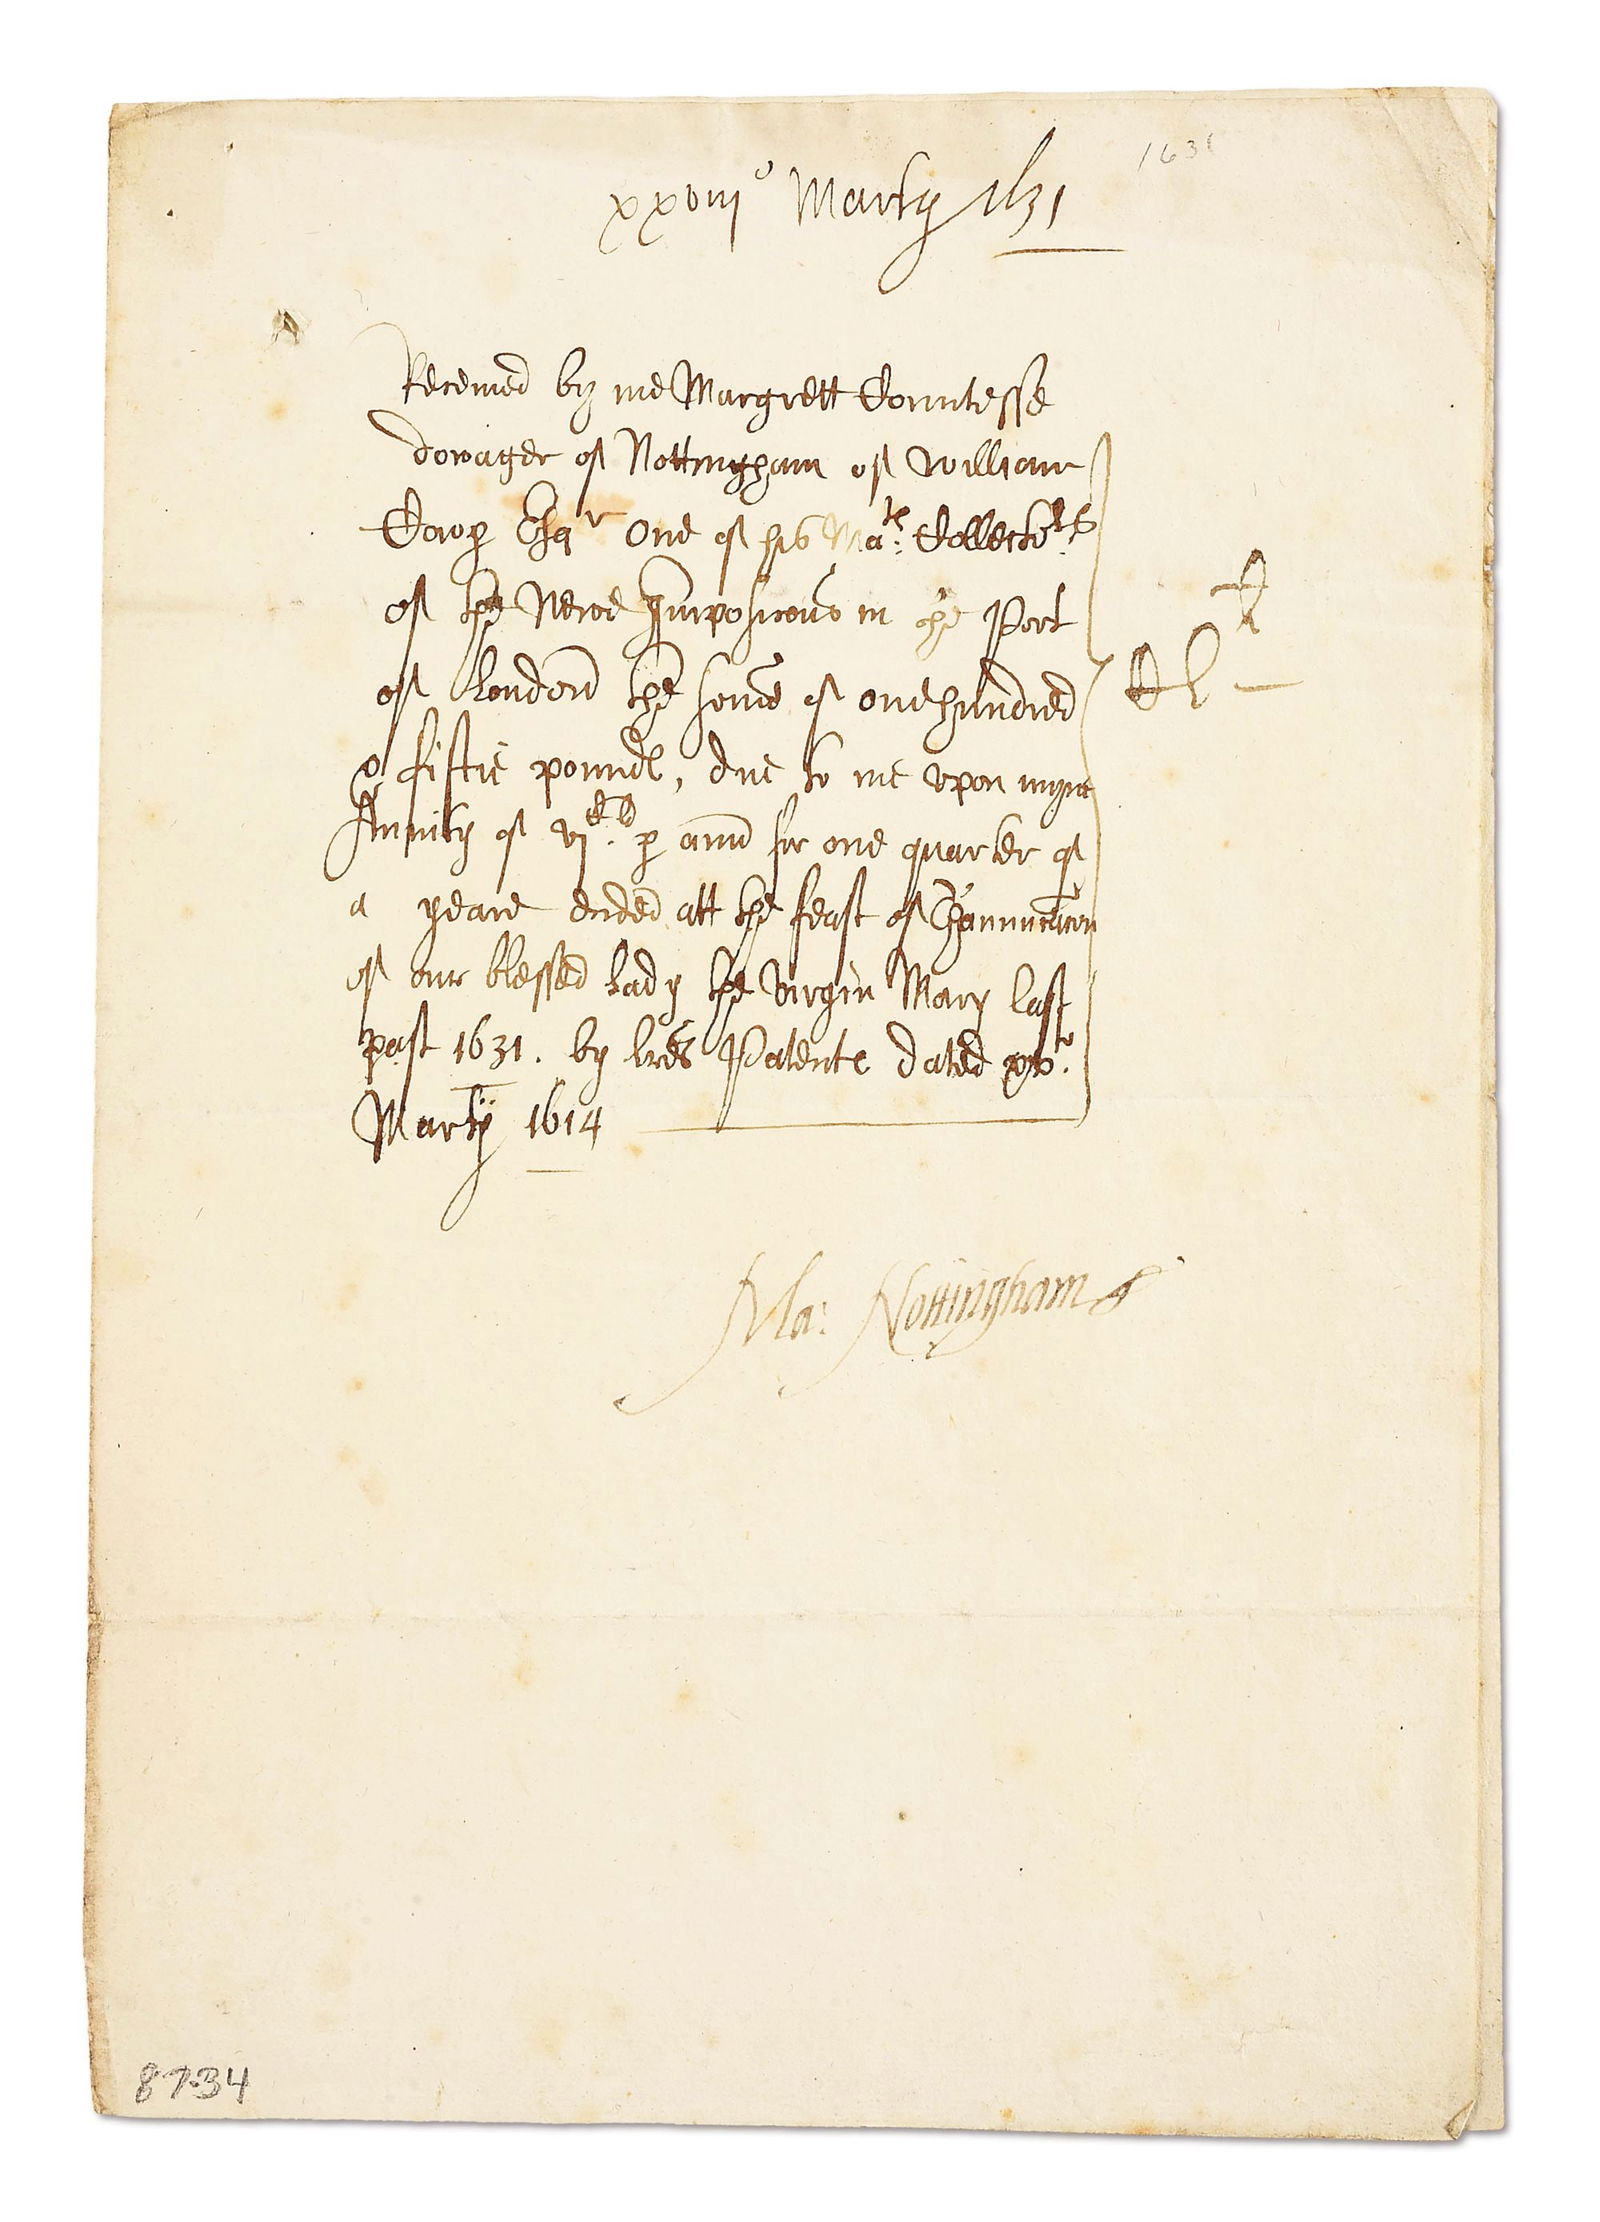 1631
xxviijo Martij 1631
Receiued by me Margrett Countesse
dowager of Nottingham of William
Cowp Esqr one of his Mate: Collectors
of the Newe Imposicons in the Port
of London the some of one hundred
& fiftie pound, due to me vpon myne
Annity of vjCli p ann for one quarter of
a yeare ended att the feast of Thannunciacon
of our blessed Lady the Virgin Mary last
past 1631. by lres Patente dated xvto.
Martij 1614
C
CL
Ma: Nottingham
87-34